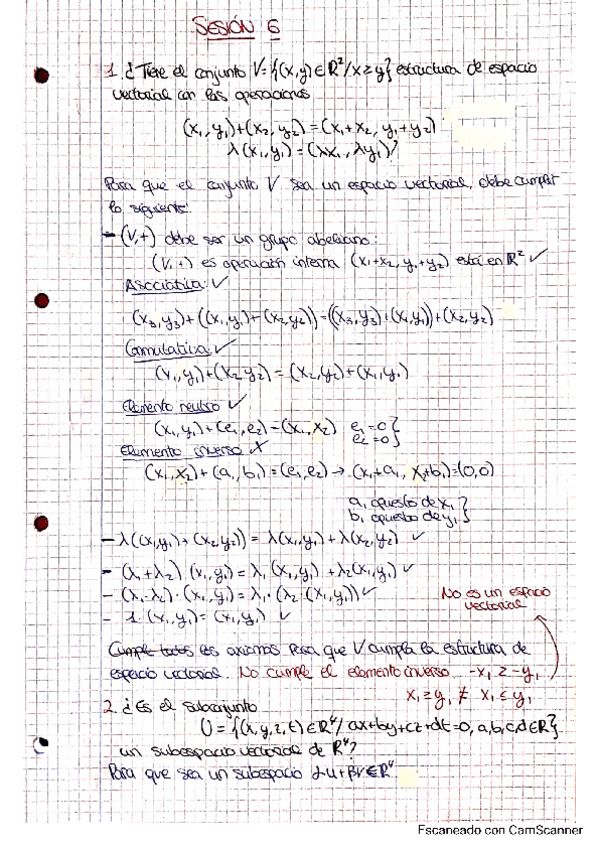 SESIÓN 6
1. ¿Tiene el conjunto V={(x,y)∈R²/x≥y} estructura de espacio
vectorial con las operaciones
(x₁,y₁)+(x₂,y₂)=(x₁+x₂, y₁+y₂)
λ(x₁,y₁)=(λx₁,λy₁)?
Para que el conjunto V sea un espacio vectorial, debe cumplir
lo siguiente:
- (V,+) debe ser un grupo abeliano:
(V,+) es operación interna (x₁+x₂, y₁+y₂) está en R² ✓
Asociativa: ✓
(x₃,y₃)+((x₁,y₁)+(x₂,y₂))=((x₃,y₃)+(x₁,y₁))+(x₂,y₂)
Conmutativa: ✓
(x₁,y₁)+(x₂,y₂)=(x₂,y₂)+(x₁,y₁)
Elemento neutro ✓
(x₁,y₁)+(e₁,e₂)=(x₁,x₂) e₁=0}
e₂=0}
Elemento inverso ✗
(x₁,x₂)+(a₁,b₁)=(e₁,e₂)→(x₁+a₁, y₁+b₁)=(0,0)
a₁ opuesto de x₁}
b₁ opuesto de y₁}
- λ((x₁,y₁)+(x₂,y₂))=λ(x₁,y₁)+λ(x₂,y₂) ✓
- (λ₁+λ₂)(x₁,y₁)=λ₁(x₁,y₁)+λ₂(x₁,y₁) ✓
- (λ₁·λ₂)·(x₁,y₁)=λ₁·(λ₂·(x₁,y₁)) ✓
No es un espacio
vectorial
- 1·(x₁,y₁)=(x₁,y₁) ✓
Cumple todos los axiomas para que V cumpla la estructura de
espacio vectorial. No cumple el elemento inverso -x₁≥-y₁
x₁≥y₁ ≠ x₁≤y₁
2. ¿Es el subconjunto
U={(x,y,z,t)∈R⁴/ax+by+cz+dt=0,a,b,c,d∈R}
un subespacio vectorial de R⁴?
Para que sea un subespacio αu+βv∈R⁴
Escaneado con CamScanner